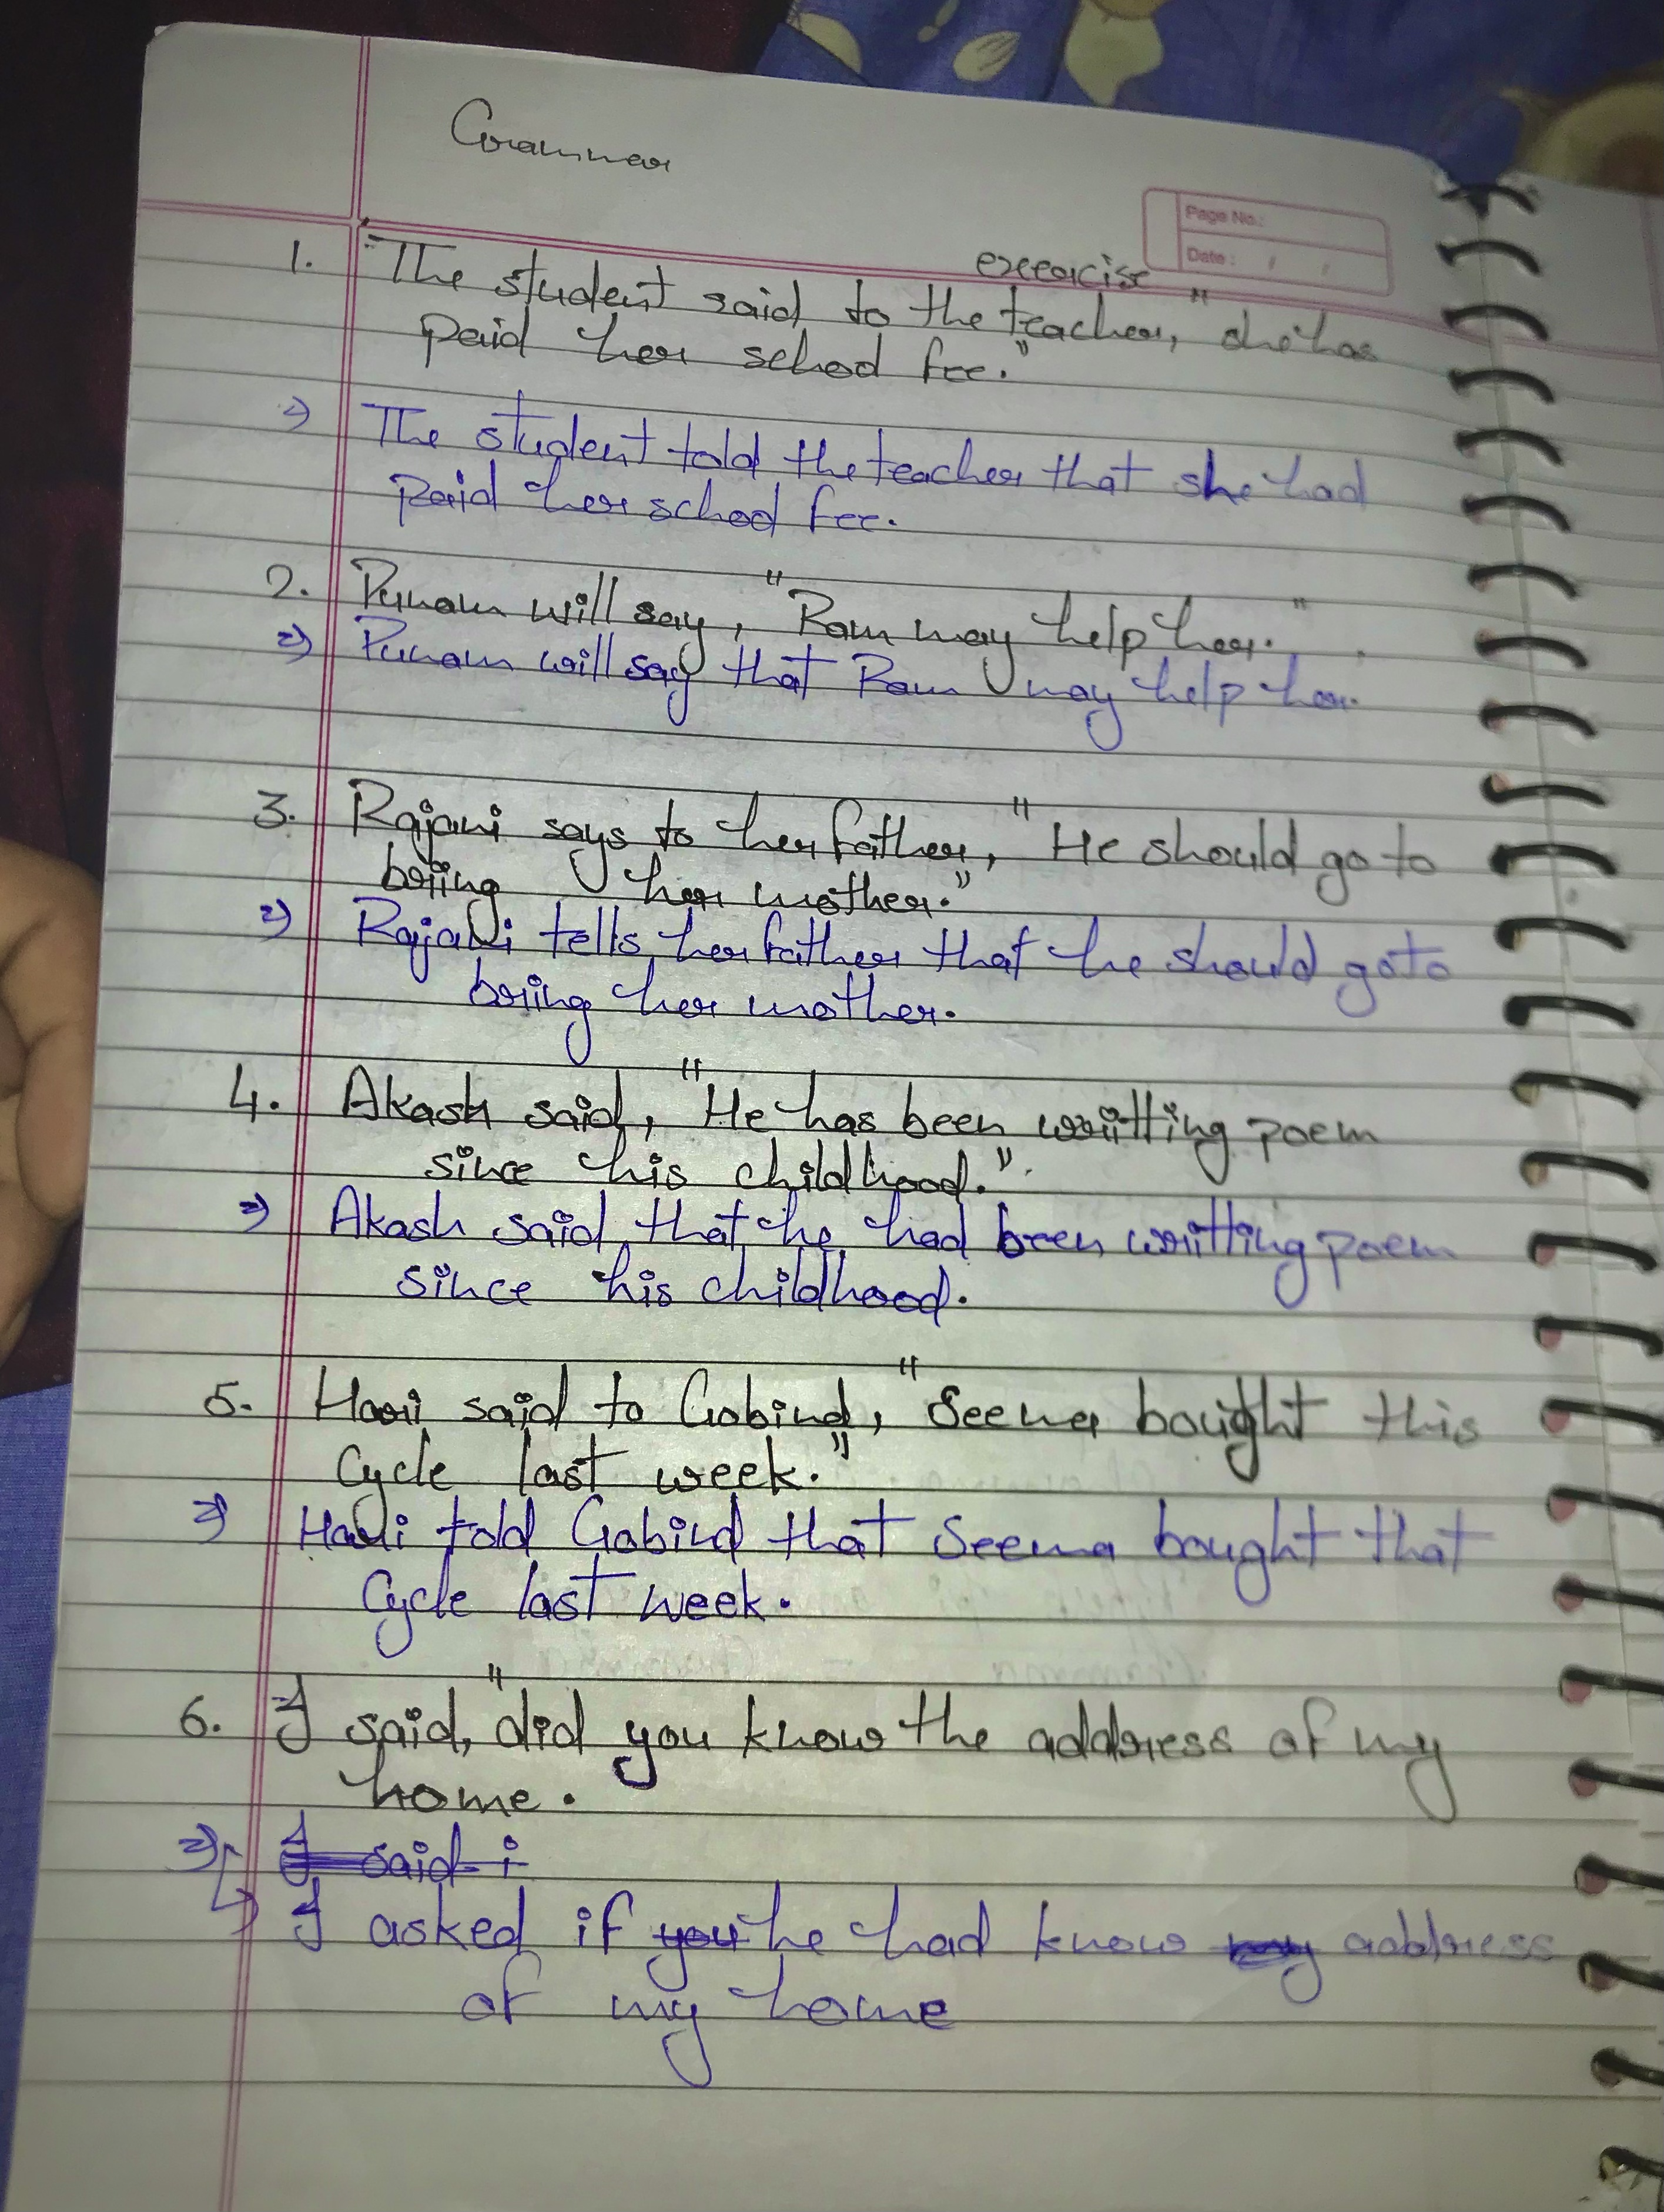 Grammar
Page No.:
Date: / /
exeercise
1. "The student said to the teacher, "she has
paid her school fee."
⇒ The student told the teacher that she had
paid her school fee.
2. Punam will say, "Ram may help her."
⇒ Punam will say that Ram may help her.
3. Rajani says to her father, "He should go to
bring her mother."
⇒ Rajani tells her father that he should go to
bring her mother.
4. Akash said, "He has been writting poem
since his childhood."
⇒ Akash said that he had been writting poem
since his childhood.
5. Hari said to Gobind, "Seema bought this
Cycle last week."
⇒ Hari told Gobind that Seema bought that
Cycle last week.
6. I said, "did you know the address of my
home.
⇒ I said i
↳ I asked if you he had know my address
of my home